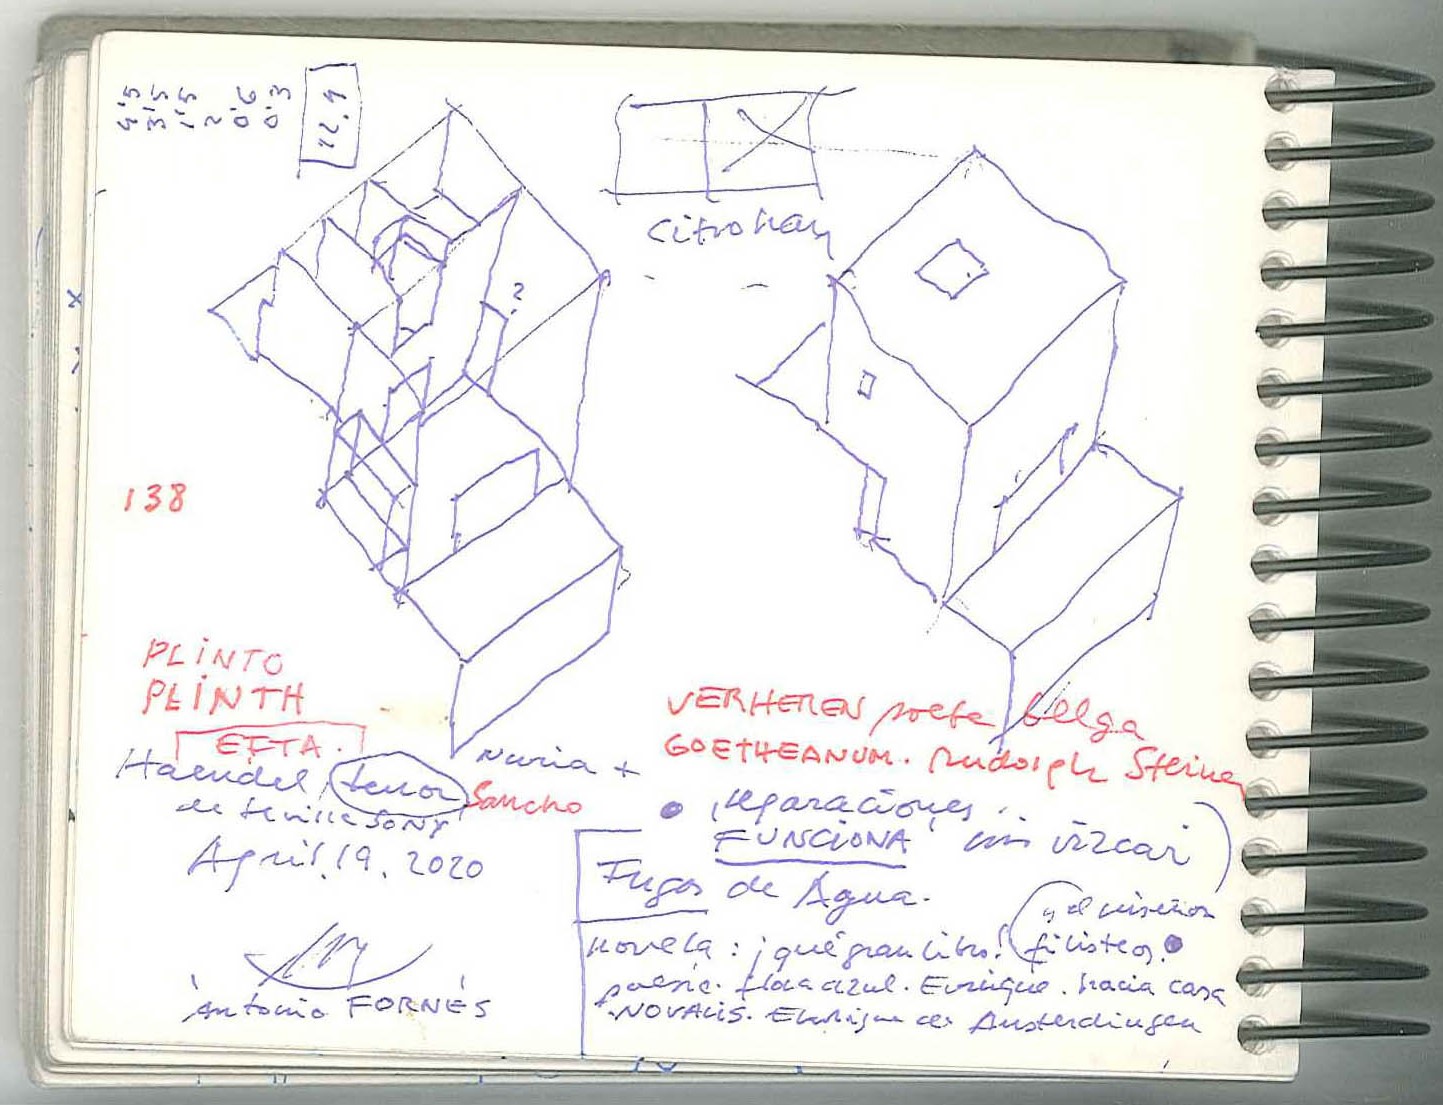 4.5
3.5
1.5
2
0.6
0.3
12,4
Citrohan
?
138
PLINTO
PLINTH
EFTA.
Haendel tenor Sancho
de SONY
April. 19. 2020
Antonio FORNÉS
Nuria +
VERHEREN poeta belga
GOETHEANUM. Rudolph Steiner
reparaciones
FUNCIONA sin
Fugas de Agua.
y el ruiseñor
novela: ¡qué gran libro! filisteos.
poesía. flor azul. Enrique. hacia casa
NOVALIS. Enrique de